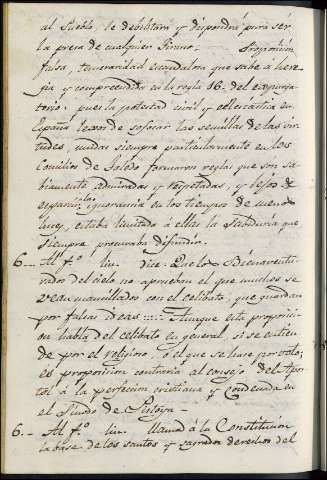 al Pueblo le debilitara y dispondra para ser
la presa de cualquier Tirano. Proposicion
falsa, temeridad escandalosa que sabe a here-
gia y comprendida en la regla 16. del expurga-
torio: pues la potestad civil y eclesiastica en
España lexos de sofocar las semillas de las vir-
tudes, unidas siempre particularmente en los
Concilios de Toledo formaron reglas que son sa-
biamente admiradas y respetadas, y lejos de
esparcir la ignorancia en los tiempos de menos
luces, estaba limitado á ellas la Sabiduria que
siempre procuraban difundir.
6 Al f.º lin. dice: Que los Bienaventu-
rados del cielo no aprueban el que muchos se
vean mancillados con el celibato, que guardan
por falsas ideas Aunque esta proposici-
on habla del celibato en general, si se entien-
de por el religioso, ó el que se hace por voto,
es proposicion contraria al consejo del Apos-
tol á la perfeccion cristiana y condenada en
el Sinodo de Pistoya.
6 Al f.º lin. llama á la Constitucion
la base de los santos y sagrados derechos del